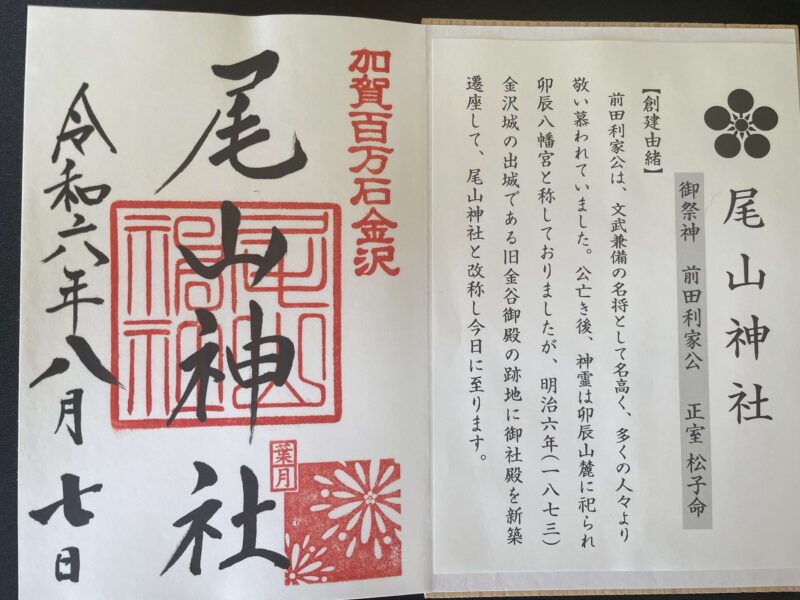 尾山神社
御祭神 前田利家公 正室 松子命
【創建由緒】
前田利家公は、文武兼備の名将として名高く、多くの人々より
敬い慕われていました。公亡き後、神霊は卯辰山麓に祀られ
卯辰八幡宮と称しておりましたが、明治六年(一八七三)
金沢城の出城である旧金谷御殿の跡地に御社殿を新築
遷座して、尾山神社と改称し今日に至ります。
加賀百万石金沢
尾山神社
葉月
令和六年八月七日